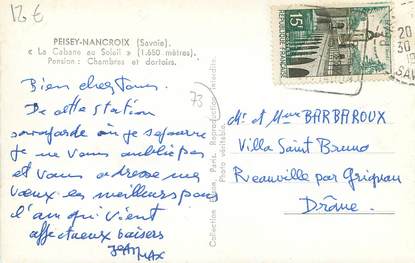 12€
PEISEY-NANCROIX (Savoie).
« La Cabane au Soleil » (1.650 mètres).
Pension : Chambres et dortoirs.
Bien chers tous.
De cette station
savoyarde où je séjourne
je ne vous oublie pas
et vous adresse mes
vœux les meilleurs pour
l'an qui vient
affectueux baisers
JEAN MAX
73
Paris. Reproduction interdite.
Photo véritable
15F
20
30
M. et Mme BARBAROUX
Villa Saint Bruno
Réauville par Grignan
Drôme.